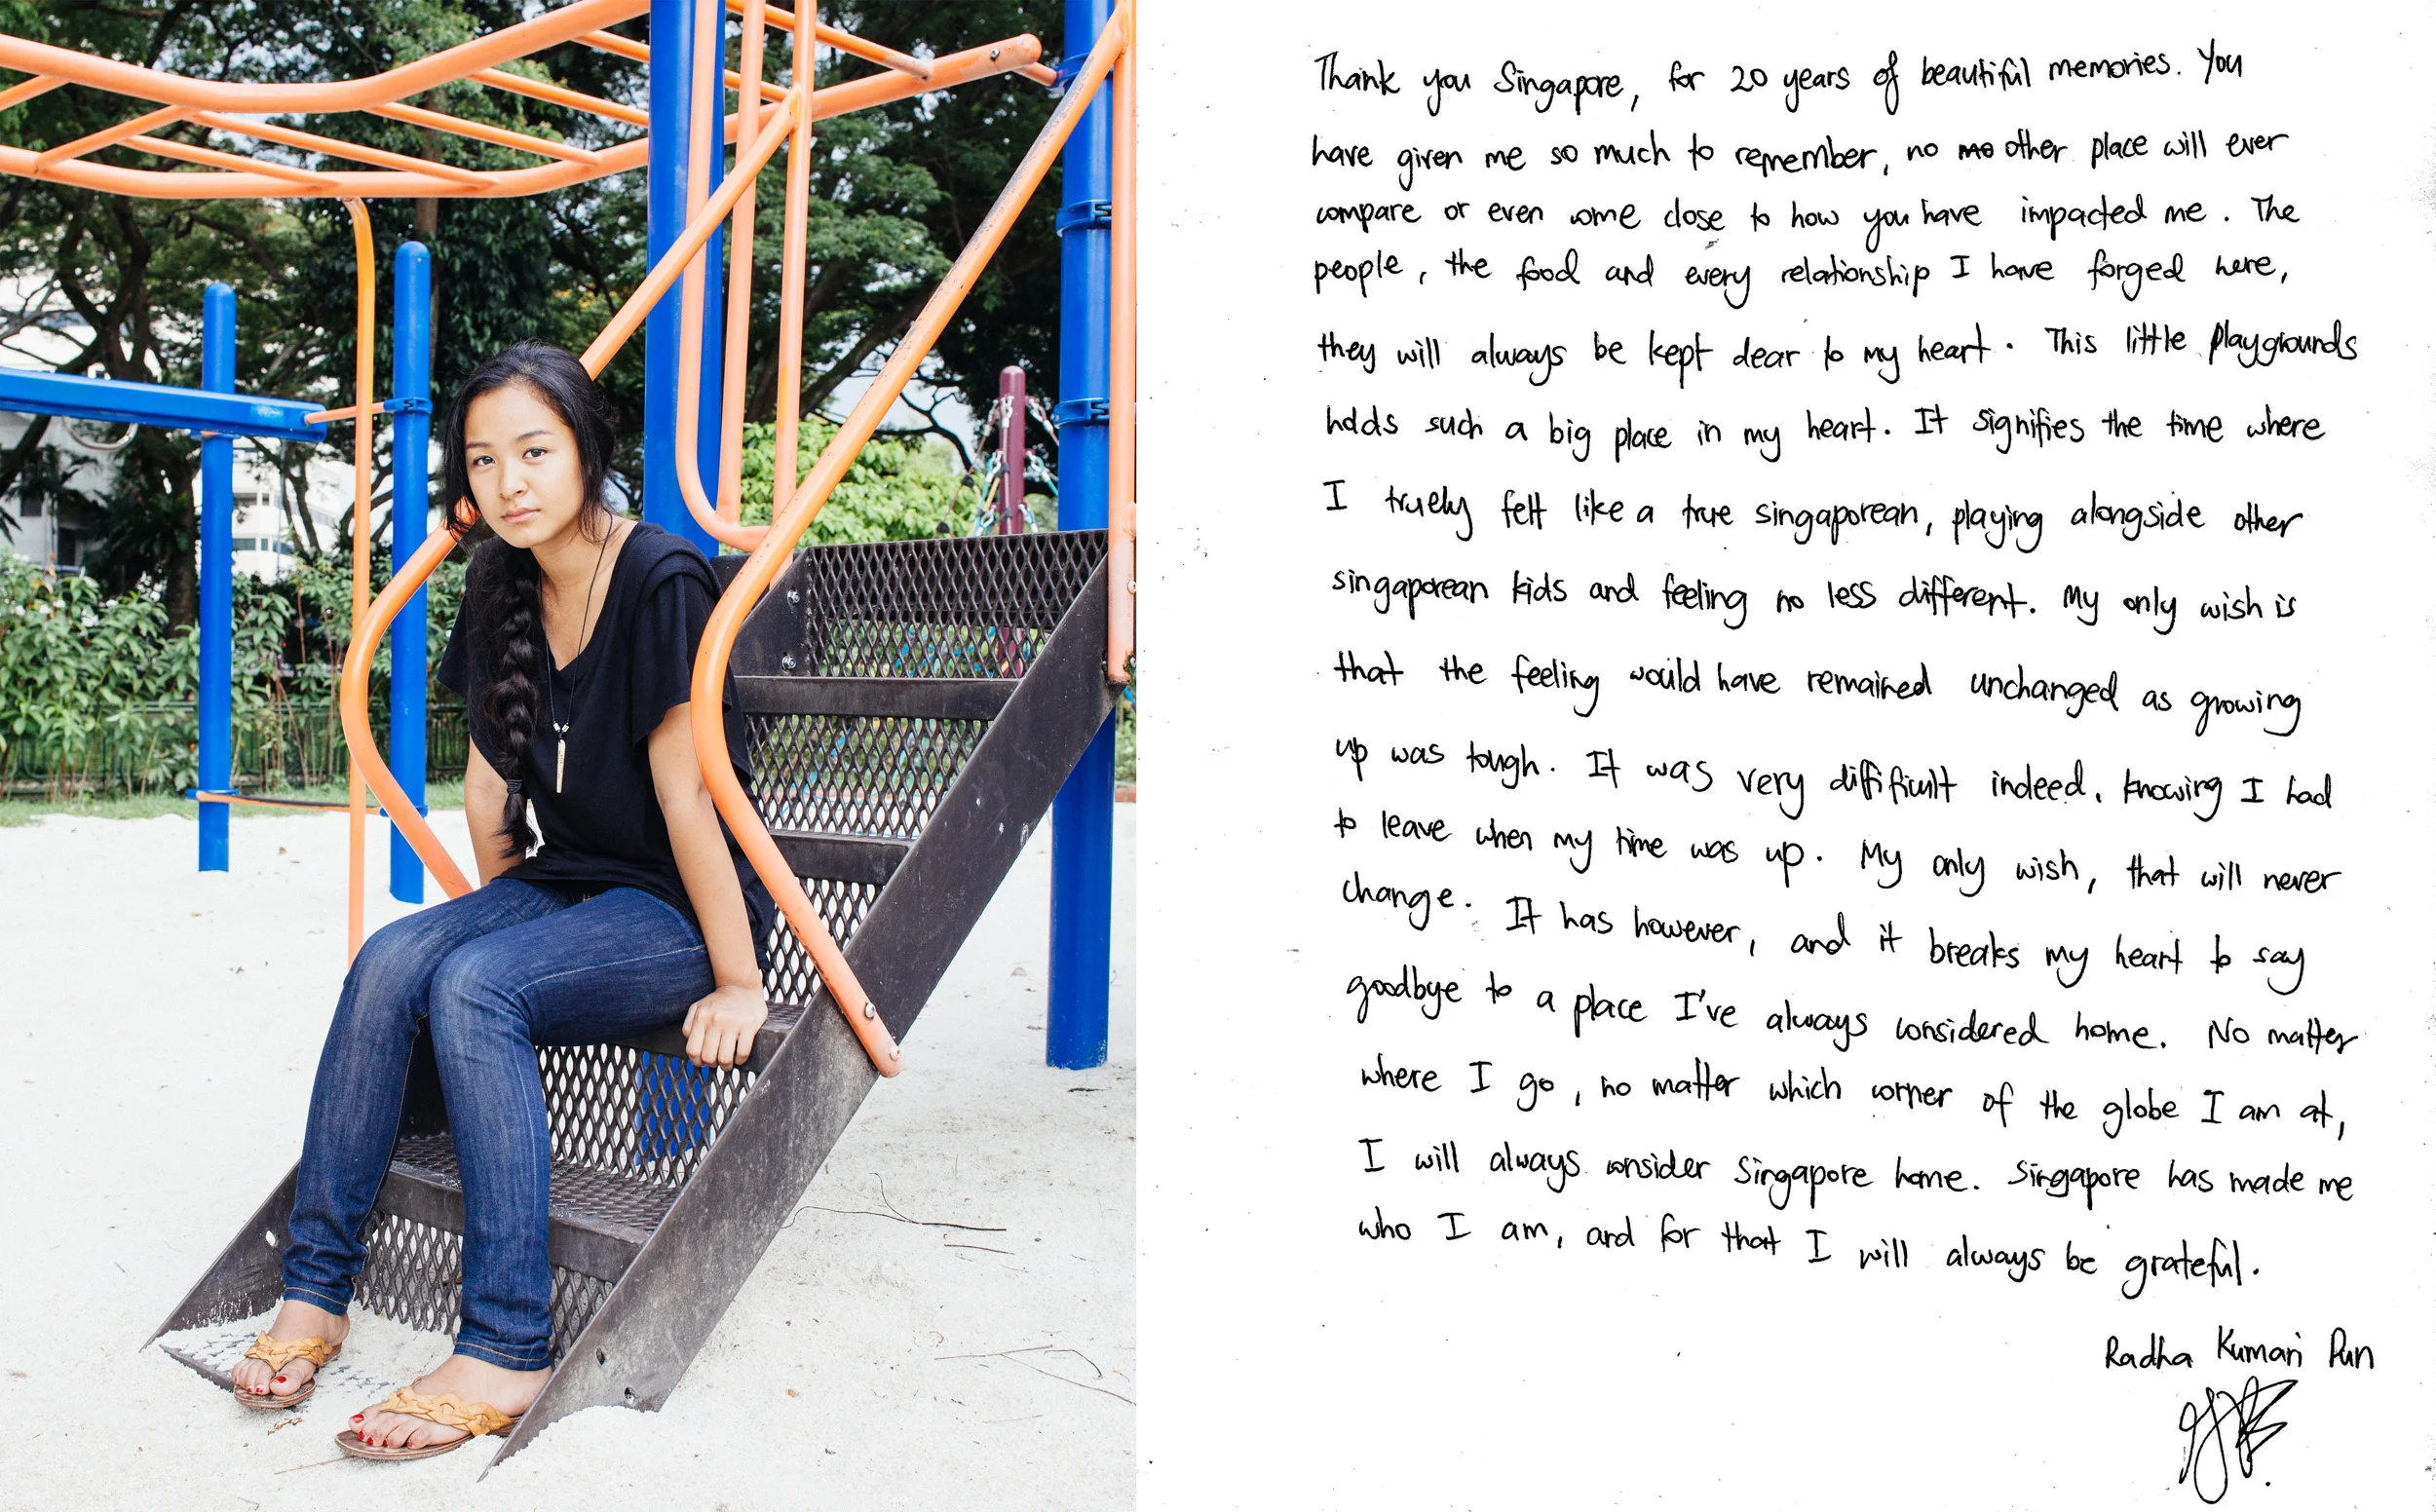 Thank you Singapore, for 20 years of beautiful memories. You
have given me so much to remember, no other place will ever
compare or even come close to how you have impacted me. The
people, the food and every relationship I have forged here,
they will always be kept dear to my heart. This little playgrounds
holds such a big place in my heart. It signifies the time where
I truely felt like a true singaporean, playing alongside other
singaporean kids and feeling no less different. My only wish is
that the feeling would have remained unchanged as growing
up was tough. It was very diffificult indeed, knowing I had
to leave when my time was up. My only wish, that will never
change. It has however, and it breaks my heart to say
goodbye to a place I've always considered home. No matter
where I go, no matter which corner of the globe I am at,
I will always consider Singapore home. Singapore has made me
who I am, and for that I will always be grateful.
Radha Kumari Pun